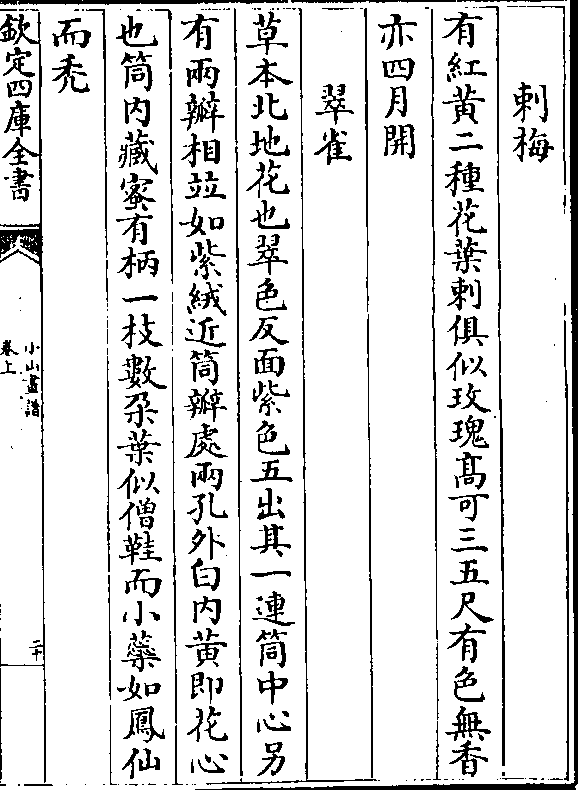 刺梅
有紅黃二種花葉刺俱似玫瑰髙可三五尺有色無香
亦四月開
翠雀
草本北地花也翠色反面紫色五出其一連筒中心另
有兩瓣相竝如紫絨近筒瓣處兩孔外白内黃即花心
也筒内藏蜜有柄一枝數朶葉似僧鞋而小蘂如鳳仙
而秃
欽定四庫全書
小山畫譜
卷上
二十